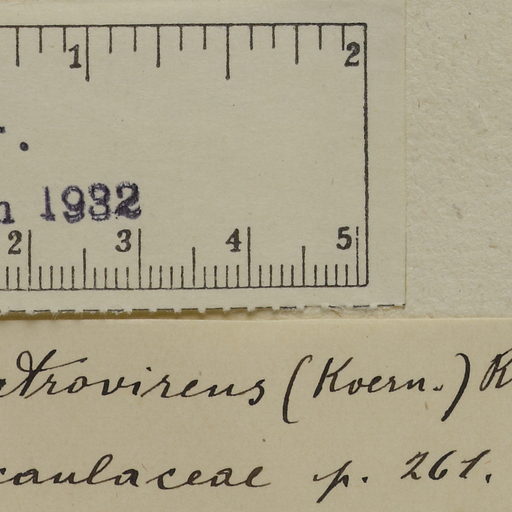 1 2
1932
2 3 4 5
atrovirens (Koern.) R
caulaceae p. 261.